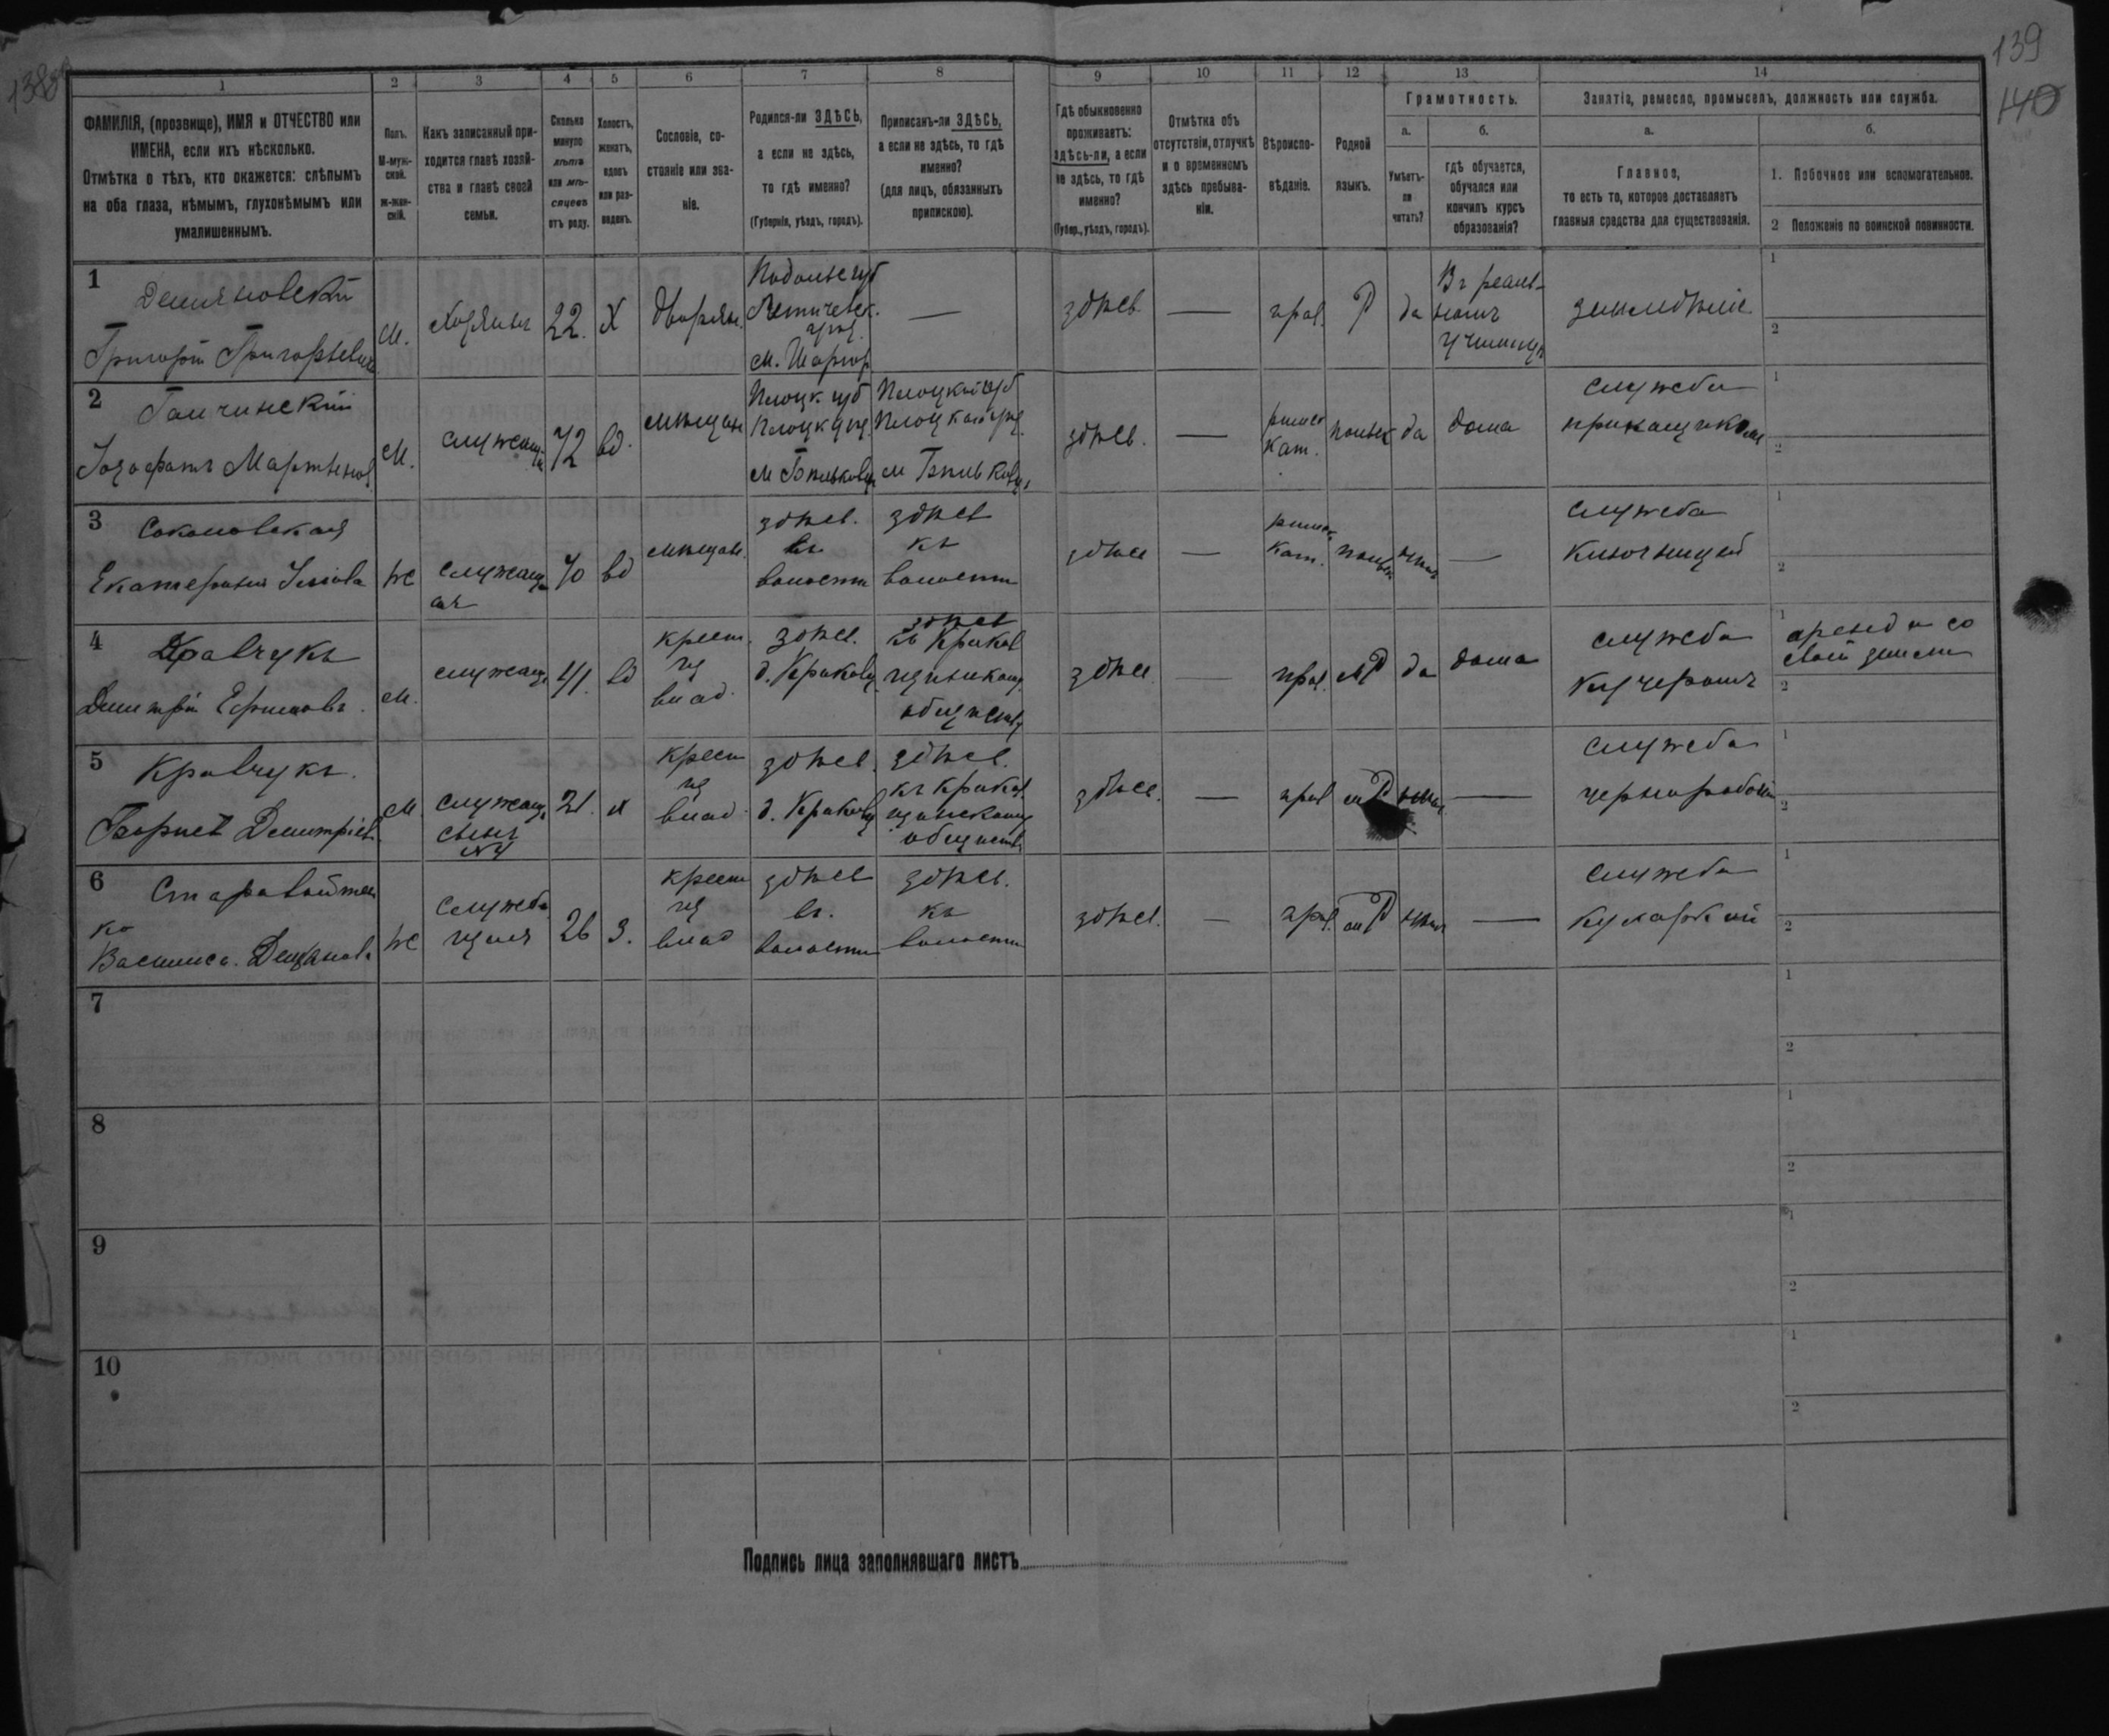 138
139
140
1 2 3 4 5 6 7 8 9 10 11 12 13 14
ФАМИЛІЯ, (прозвище), ИМЯ и ОТЧЕСТВО или
ИМЕНА, если ихъ нѣсколько.
Отмѣтка о тѣхъ, кто окажется: слѣпымъ
на оба глаза, нѣмымъ, глухонѣмымъ или
умалишеннымъ.
Полъ.
М-муж-
ской.
ж-жен-
скій.
Какъ записанный при-
ходится главѣ хозяй-
ства и главѣ своей
семьи.
Сколько
минуло
лѣтъ
или мѣ-
сяцевъ
отъ роду.
Холостъ,
женатъ,
вдовъ
или раз-
веденъ.
Сословіе, со-
стояніе или зва-
ніе.
Родился-ли ЗДѢСЬ,
а если не здѣсь,
то гдѣ именно?
(Губернія, уѣздъ, городъ).
Приписанъ-ли ЗДѢСЬ,
а если не здѣсь, то гдѣ
именно?
(для лицъ, обязанныхъ
припискою).
Гдѣ обыкновенно
проживаетъ:
здѣсь-ли, а если
не здѣсь, то гдѣ
именно?
(Губер., уѣздъ, городъ).
Отмѣтка объ
отсутствіи, отлучкѣ
и о временномъ
здѣсь пребыва-
ніи.
Вѣроиспо-
вѣданіе.
Родной
языкъ.
Грамотность.
а.
Умѣетъ-
ли
читать?
б.
гдѣ обучается,
обучался или
кончилъ курсъ
образованія?
Занятіе, ремесло, промыселъ, должность или служба.
а.
Главное,
то есть то, которое доставляетъ
главныя средства для существованія.
б.
1. Побочное или вспомогательное.
2 Положеніе по воинской повинности.
1
Григорій Григорьевичъ
М.
Хозяинъ
22.
Х
Дворян.
Подольс губ
м. Шаргор
—
здѣсь
—
прав.
Р
да
Въ реаль-
номъ
училищѣ
земледѣліе
1
2
2
М.
служащ
72
вд.
мѣщан
Плоцк губ
Плоцк у
Плоцкой губ
здѣсь.
—
римск
Кат.
польск
да
дома
служба
прикащикомъ
1
2
3
Соколовская
Екатерина
ж
служащ
ая
70
вд
мѣщан.
здѣсь.
въ
волости
здѣсь
къ
волости
здѣсь
—
римск
Кат.
польск
—
служба
ключницей
1
2
4
Кравчукъ
Дмитрій Ефимовъ.
м.
служащ
41
вд
крест.
из
влад.
здѣсь.
д.
здѣсь
къ
обществу
здѣсь
—
прав.
МР
да
дома
служба
кучеромъ
1 аренда со
своей земли
2
5
Кравчукъ.
Борисъ Дмитріев.
м.
служащ
сынъ
№4
21.
х
крест
из
влад.
здѣсь.
д.
здѣсь.
къ
обществ
здѣсь.
—
прав
мР
—
служба
чернорабочій
1
2
6
Старовойтен
ко
Василиса.
ж
26
З.
крест
из
влад
здѣсь
въ.
волости
здѣсь.
къ
волости
здѣсь.
—
прав.
мР
—
служба
кухаркой
1
2
7
1
2
8
1
2
9
1
2
10
1
2
Подпись лица заполнявшаго листъ